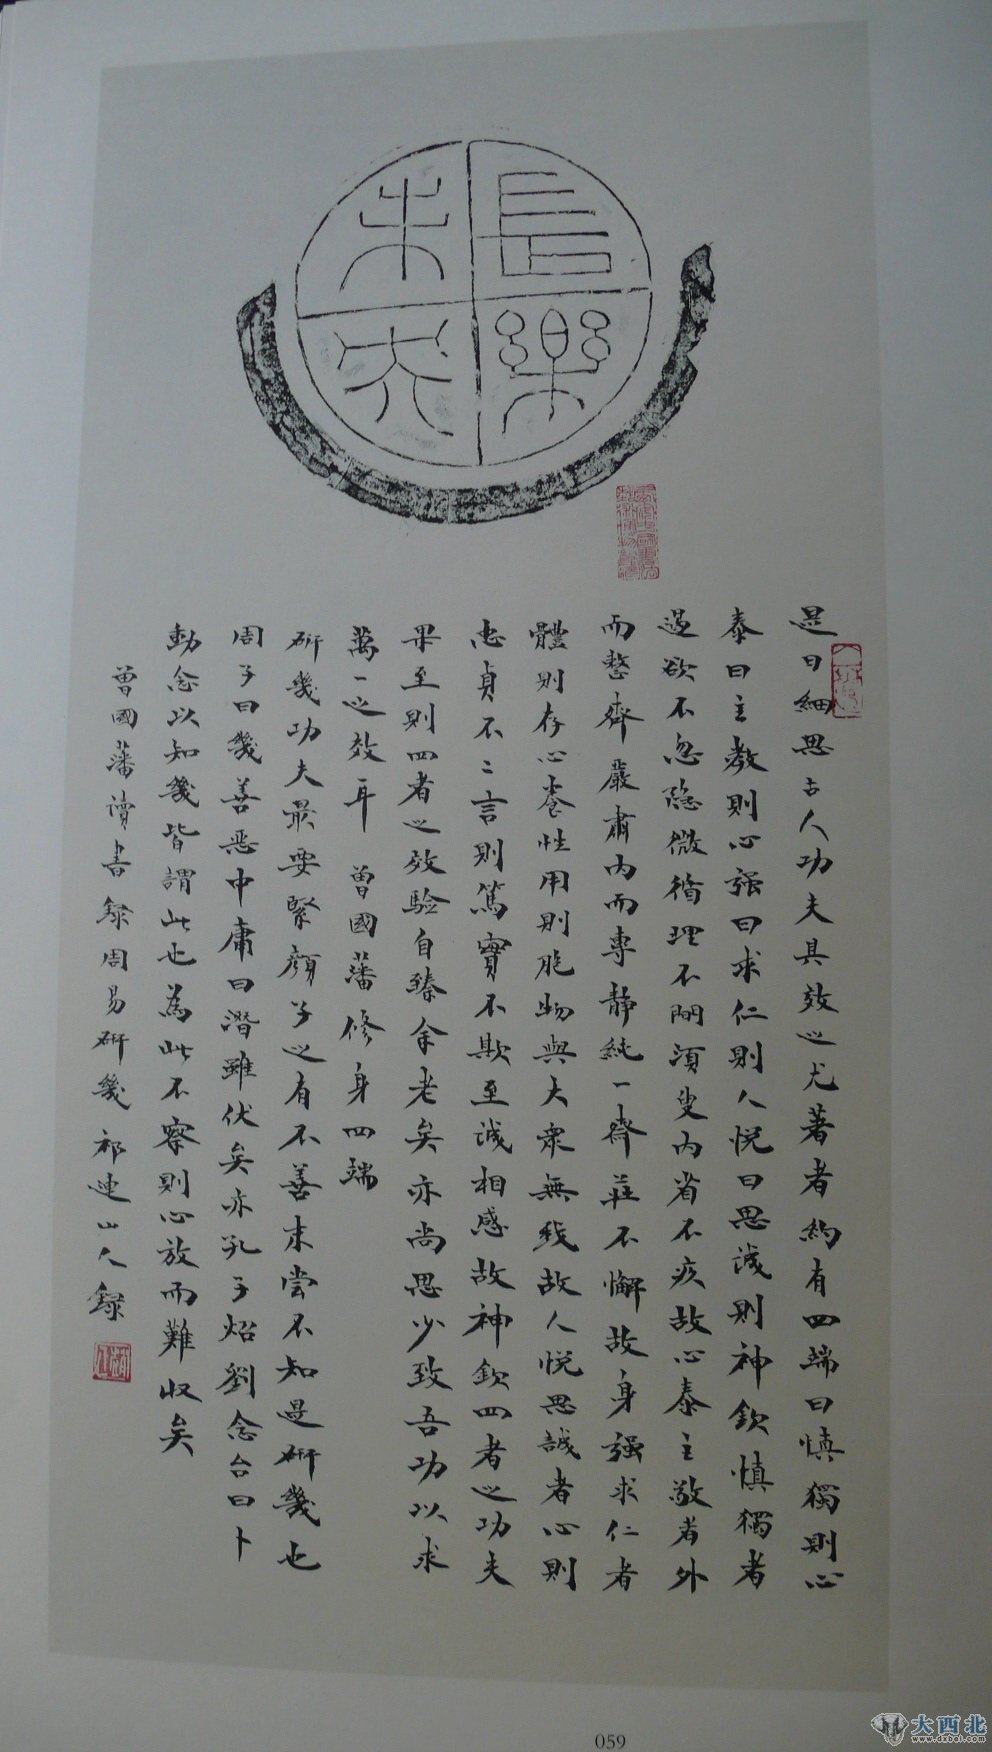 長樂未央
是日細思古人功夫其效之尤著者約有四端曰慎獨則心
泰曰主敬則心强曰求仁則人悦曰思誠則神欽慎獨者
遏欲不忽隐微循理不間須臾内省不疚故心泰主敬者外
而整齊嚴肅内而專静純一齋莊不懈故身强求仁者
體則存心養性用則胞物與大衆無我故人悦思誠者心則
忠貞不二言則篤實不欺至誠相感故神欽四者之功夫
果至則四者之效驗自臻余老矣亦尚思少致吾功以求
萬一之效耳 曾國藩修身四端
研幾功夫最要緊顏子之有不善未嘗不知是研幾也
周子曰幾善恶中庸曰潛雖伏矣亦孔子炤劉念台曰卜
動念以知幾皆謂此也爲此不察則心放而難收矣
曾國藩讀書録周易研幾 祁連山人録
059
大西北
www.dxbei.com